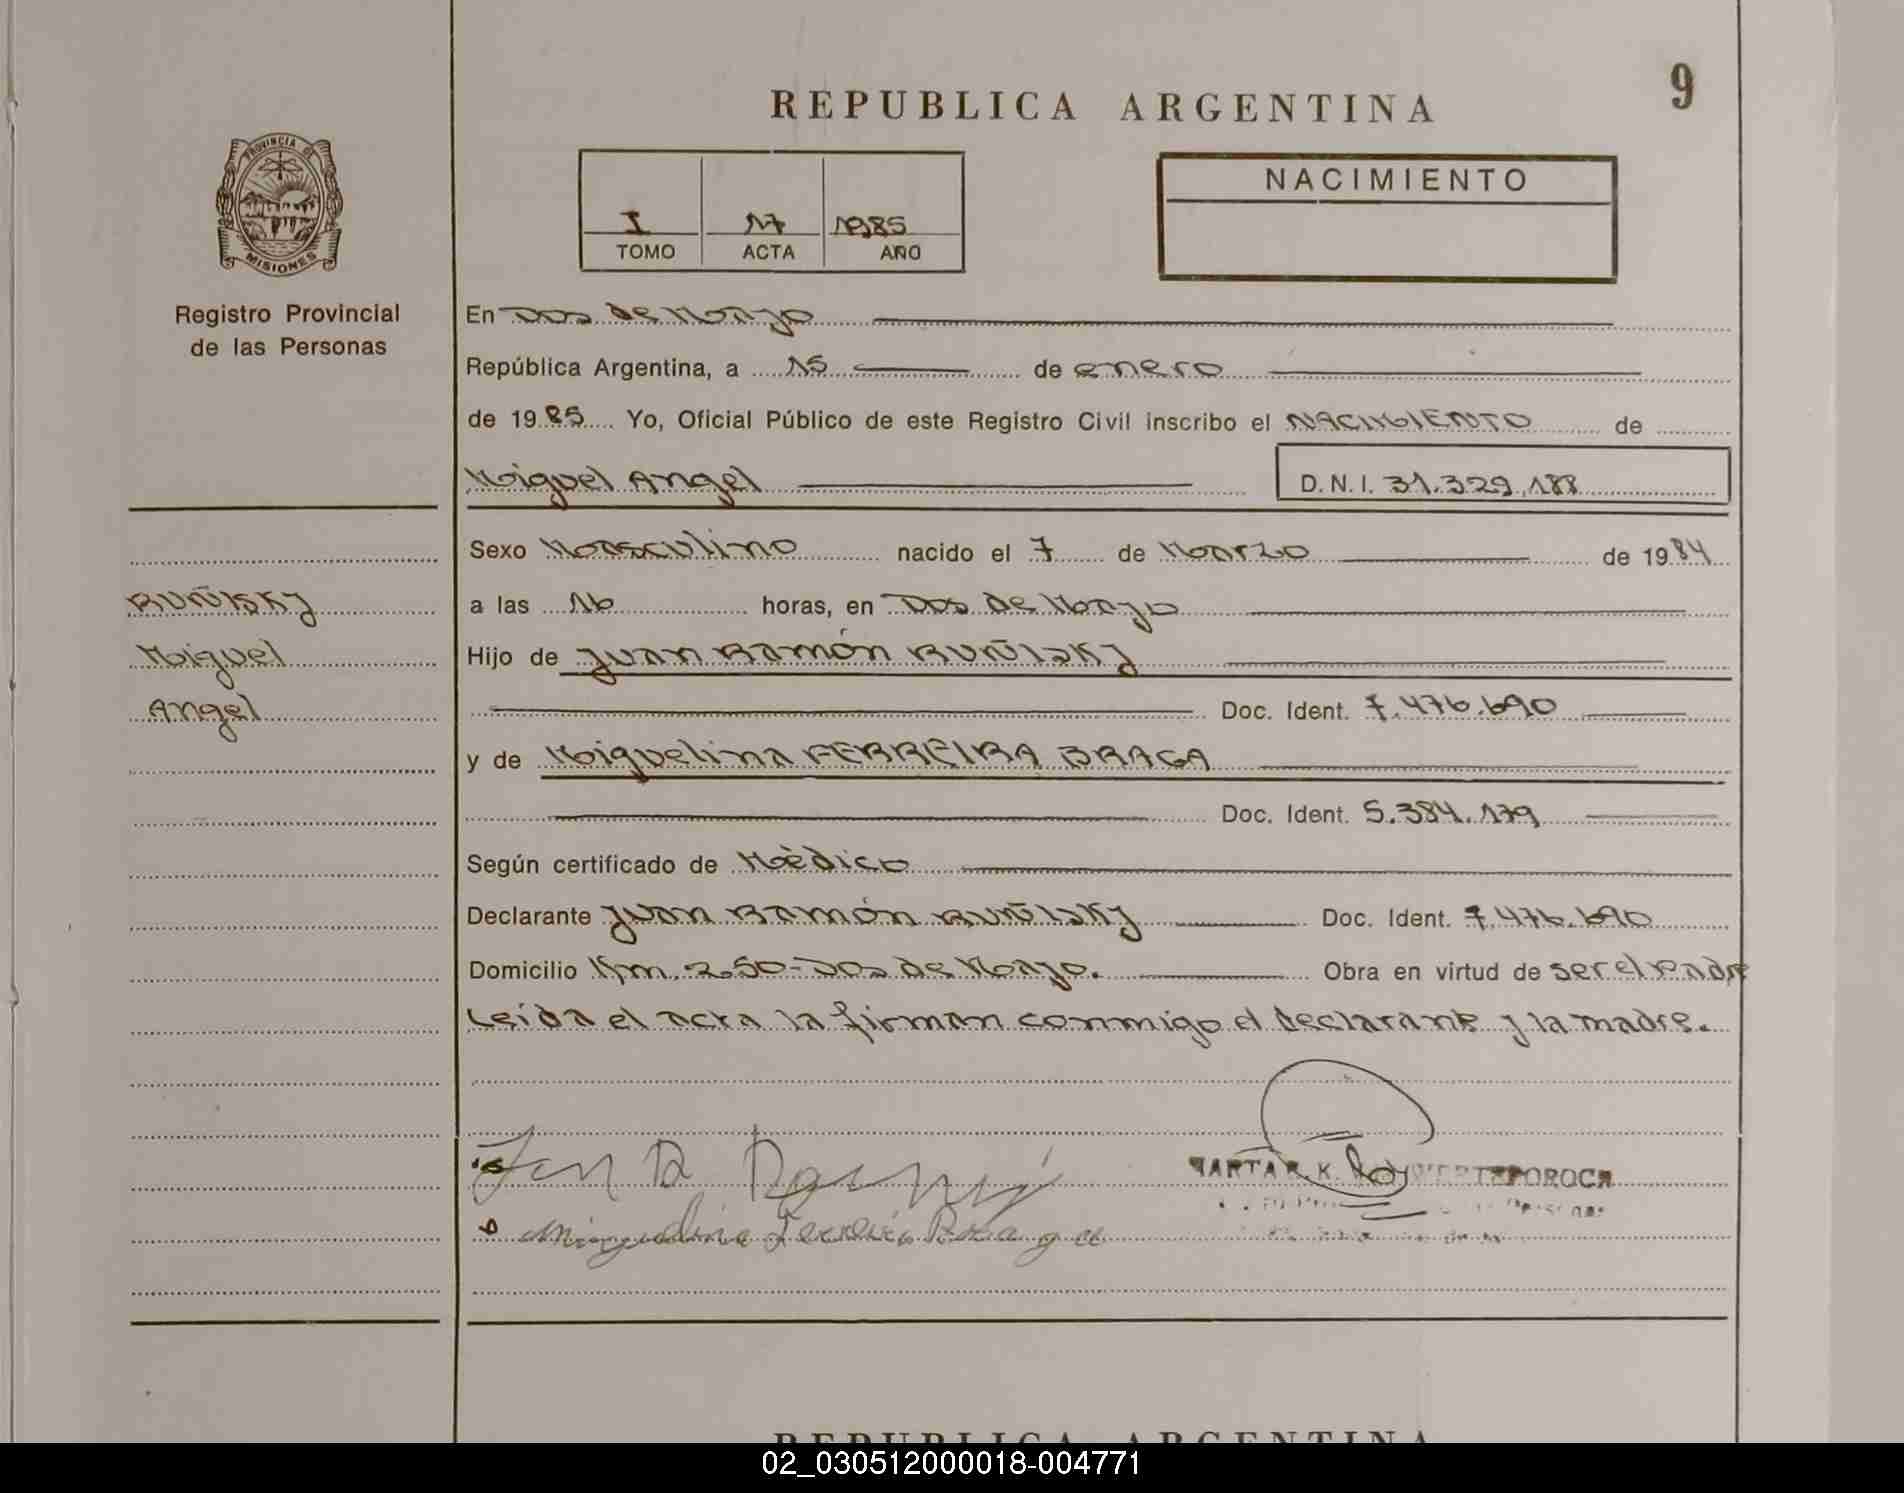 REPUBLICA ARGENTINA
9
PROVINCIA DE
MISIONES
Registro Provincial
de las Personas
I 17 1985
TOMO ACTA AÑO
NACIMIENTO
En Dos de Mayo
República Argentina, a 15 de enero
de 1985 Yo, Oficial Público de este Registro Civil inscribo el NACIMIENTO de
Miguel Angel D.N.I. 31.329.188
Sexo Masculino nacido el 7 de Marzo de 1984
RUÑISKY
a las 16 horas, en Dos de Mayo
Miguel
Hijo de Juan Ramón RUÑISKY
Angel
Doc. Ident. 7.476.690
y de Miguelina FERREIRA BRAGA
Doc. Ident. 5.384.179
Según certificado de Mèdico
Declarante Juan Ramón RUÑISKY Doc. Ident. 7.476.690
Domicilio Km. 250-Dos de Mayo. Obra en virtud de ser el padre
Leída el acta la firman conmigo el declarante y la madre.
Miguelina Ferreira Braga
REPUBLICA ARGENTINA
02_030512000018-004771